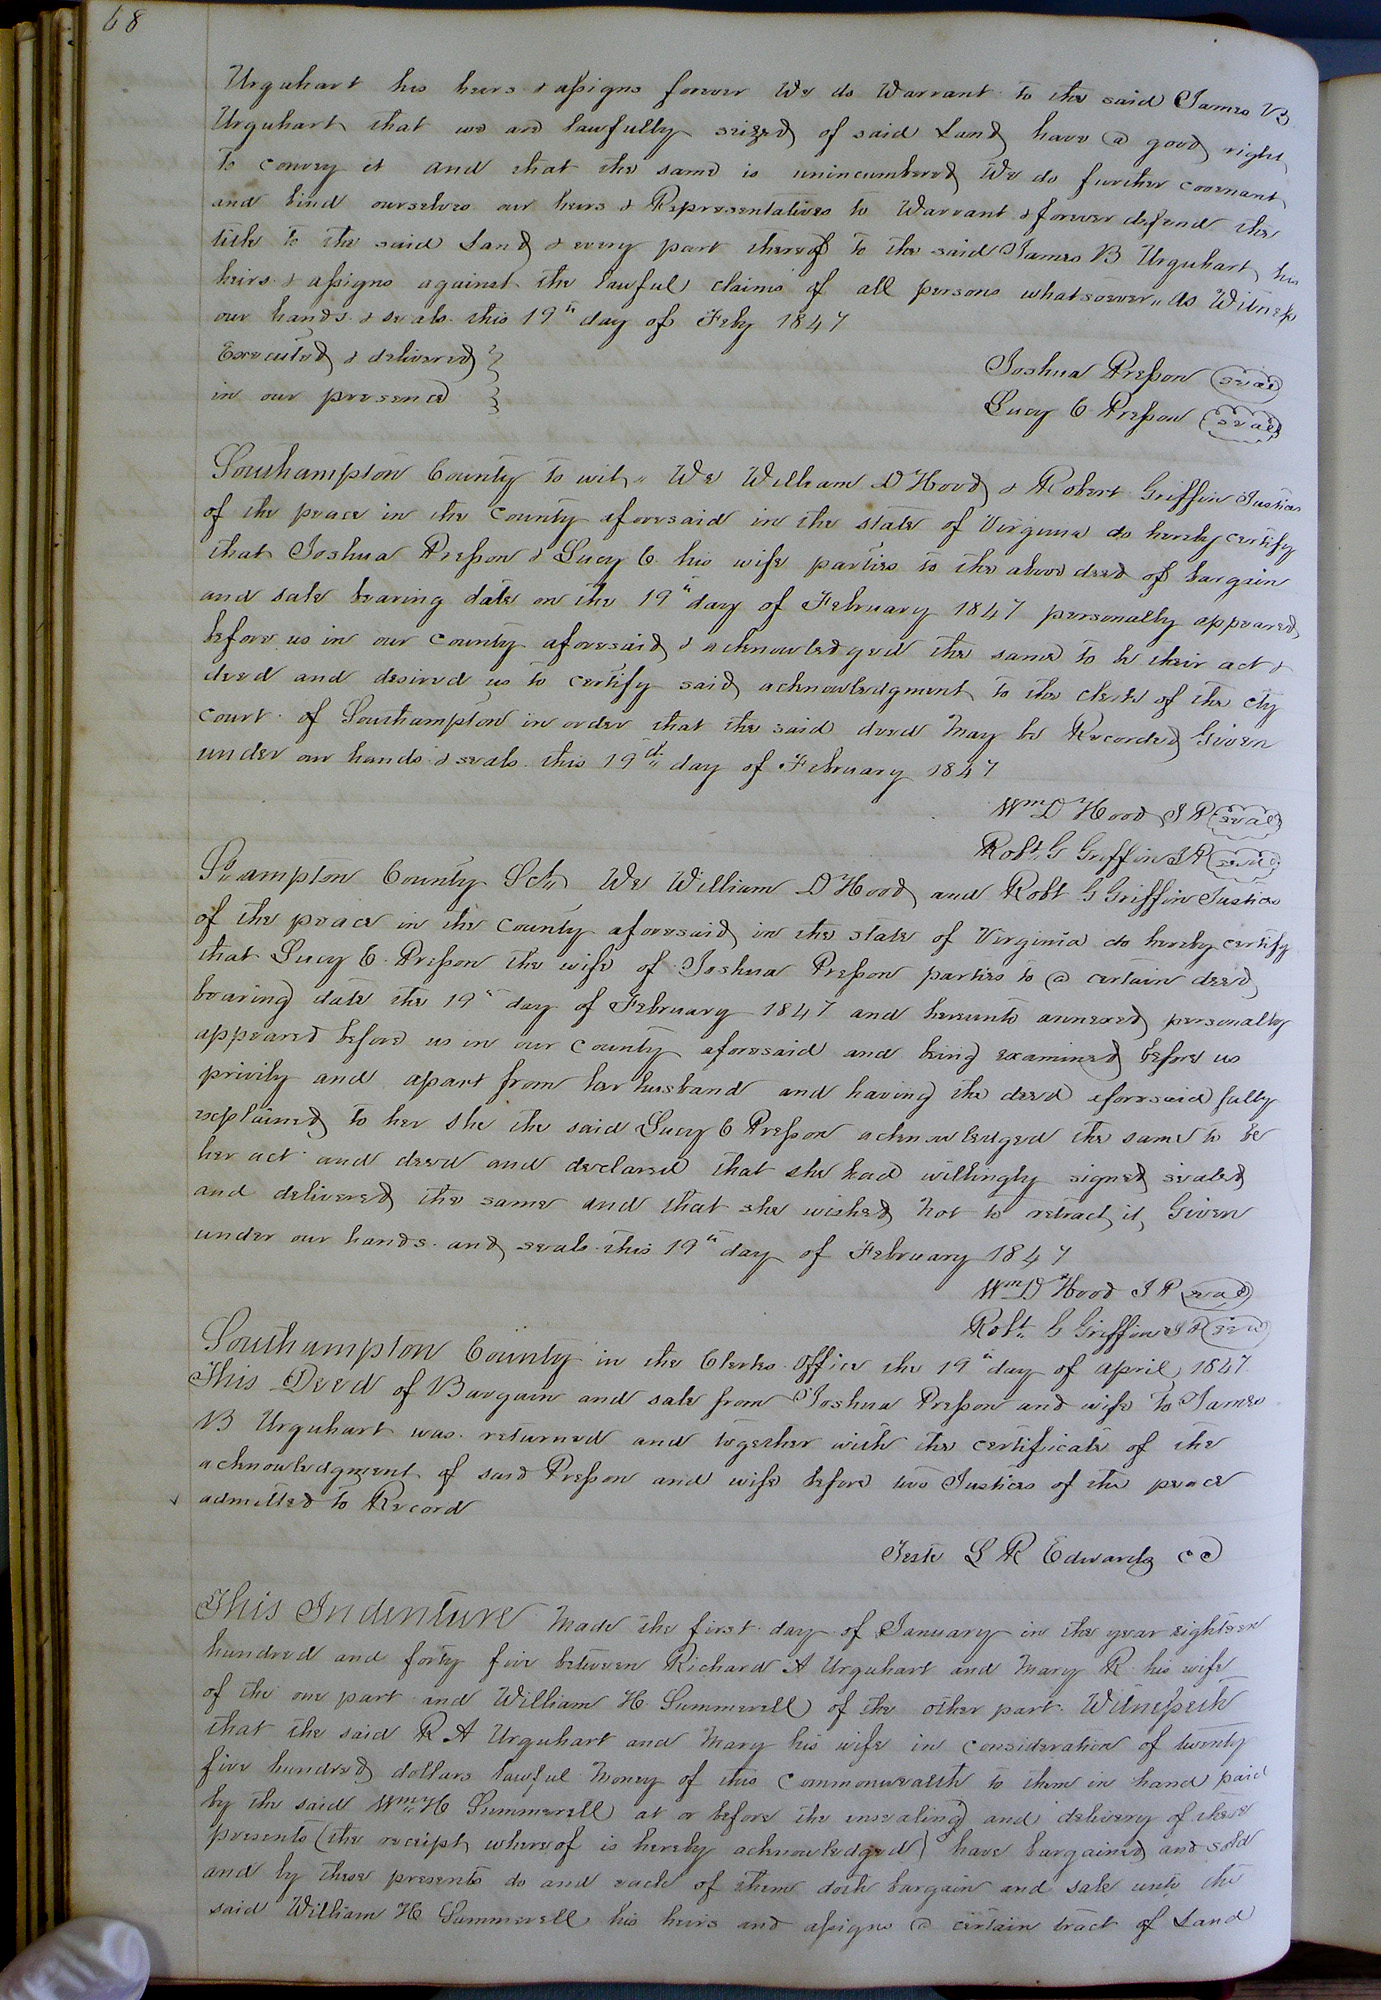 68
Urquhart his heirs & assigns forever We do Warrant to the said James B
Urquhart that we are lawfully seized of said Land have a good right
to convey it and that the same is unincumbered We do further covenant
and bind ourselves our heirs & Representatives to Warrant & forever defend the
title to the said Land & every part thereof to the said James B Urquhart his
heirs & assigns against the lawful claims of all persons whatsoever,, As Witness
our hands & seals this 19th day of Feby 1847
Executed & delivered }
in our presence }
Joshua Presson (seal)
Lucy C Presson (seal)
Southampton County to wit,, We William D Hood & Robert Griffin Justices
of the peace in the County aforesaid in the state of Virginia do hereby certify
that Joshua Presson & Lucy C. his wife parties to the above deed of bargain
and sale bearing date on the 19th day of February 1847 personally appeared
before us in our County aforesaid & acknowledged the same to be their act &
deed and desired us to certify said acknowledgment to the clerk of the cty
court of Southampton in order that the said deed may be Recorded Given
under our hands & seals this 19th day of February 1847
Wm D Hood J P (seal)
Robt. G Griffin J P (seal)
So,,ampton County Sct,, We William D Hood and Robt G Griffin Justices
of the peace in the County aforesaid in the state of Virginia do hereby certify
that Lucy C. Presson the wife of Joshua Presson parties to a certain deed
bearing date the 19th day of February 1847 and hereunto annexed personally
appeared before us in our County aforesaid and being examined before us
privily and apart from her husband and having the deed aforesaid fully
explained to her she the said Lucy C Presson acknowledged the same to be
her act and deed and declared that she had willingly signed sealed
and delivered the same and that she wished not to retract it, Given
under our hands and seals this 19th day of February 1847
Wm D Hood J P (seal)
Robt. G Griffin J P (seal)
Southampton County in the Clerks Office the 19th day of April 1847
This Deed of Bargain and sale from Joshua Presson and wife to James
B Urquhart was returned and together with the certificate of the
acknowledgment of said Presson and wife before two Justices of the peace
admitted to Record
Teste L R Edwards CC
This Indenture Made the first day of January in the year eighteen
hundred and forty five between Richard A Urquhart and Mary R his wife
of the one part and William H. Summerell of the other part Witnesseth
that the said R A Urquhart and Mary his wife in consideration of twenty
five hundred dollars lawful Money of this Commonwealth to them in hand paid
by the said Wm H Summerell at or before the ensealing and delivery of these
presents (the receipt whereof is hereby acknowledged) have bargained and sold
and by these presents do and each of them doth bargain and sale unto the
said William H Summerell his heirs and assigns a certain tract of Land